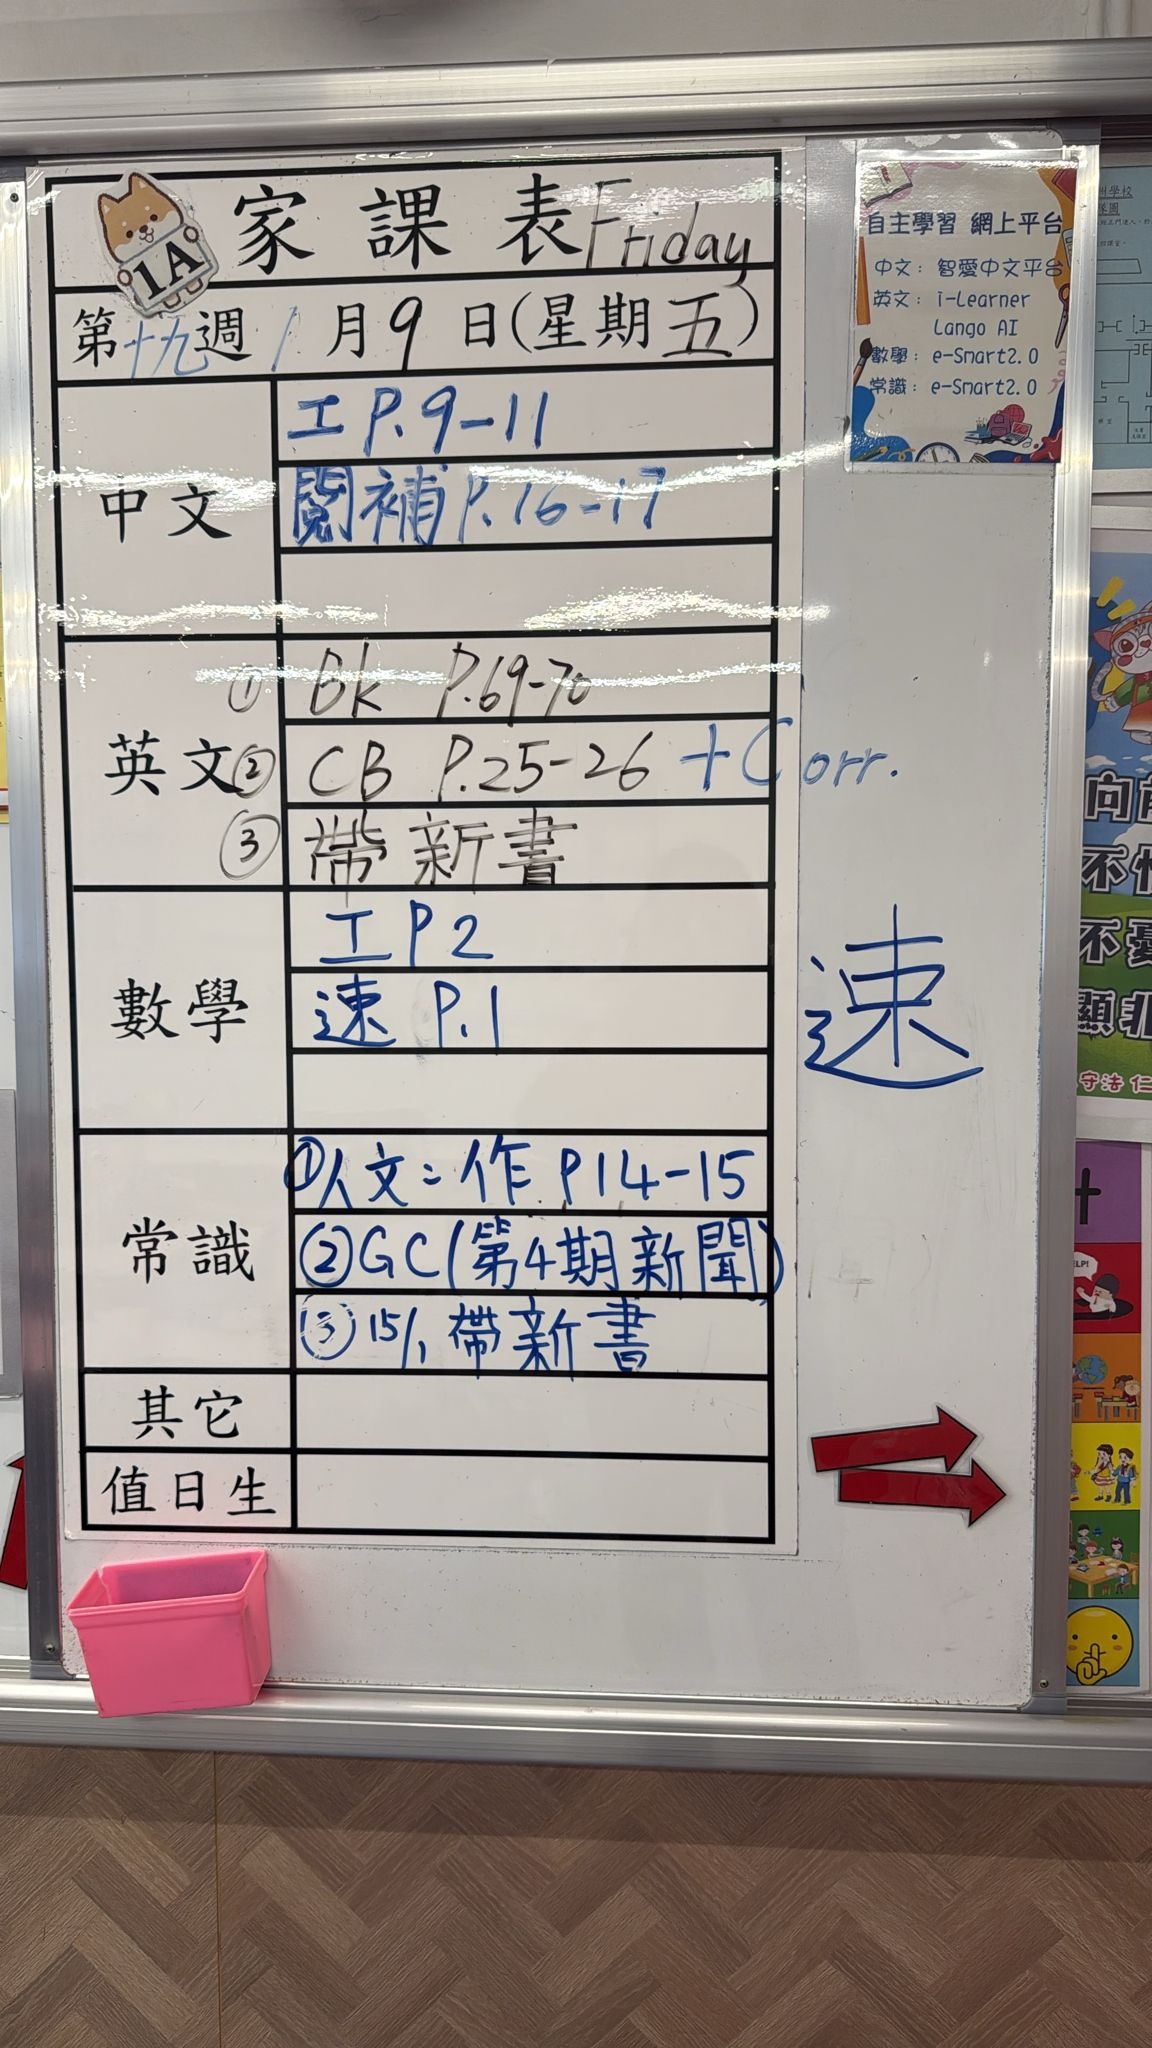 1A
家課表 Friday
第十九週 1月9日(星期五)
中文
工 P.9-11
閱補 P.16-17
英文
① Bk P.69-70
② CB P.25-26 + Corr.
③ 帶新書
數學
工 P2
速 P.1
速
常識
①人文：作 P14-15
②GC(第4期新聞)
③15/1 帶新書
其它
值日生
自主學習 網上平台
中文：智愛中文平台
英文：i-Learner
Lango AI
數學：e-Smart2.0
常識：e-Smart2.0
學校
向
不
不憂
顯非
守法 仁